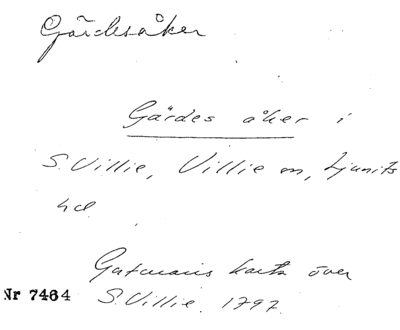 Gärdesåker
Gärdes åker i
S. Villie, Villie sn, Ljunits
hd
Gutmans karta över
Nr 7464 S. Villie. 1797.